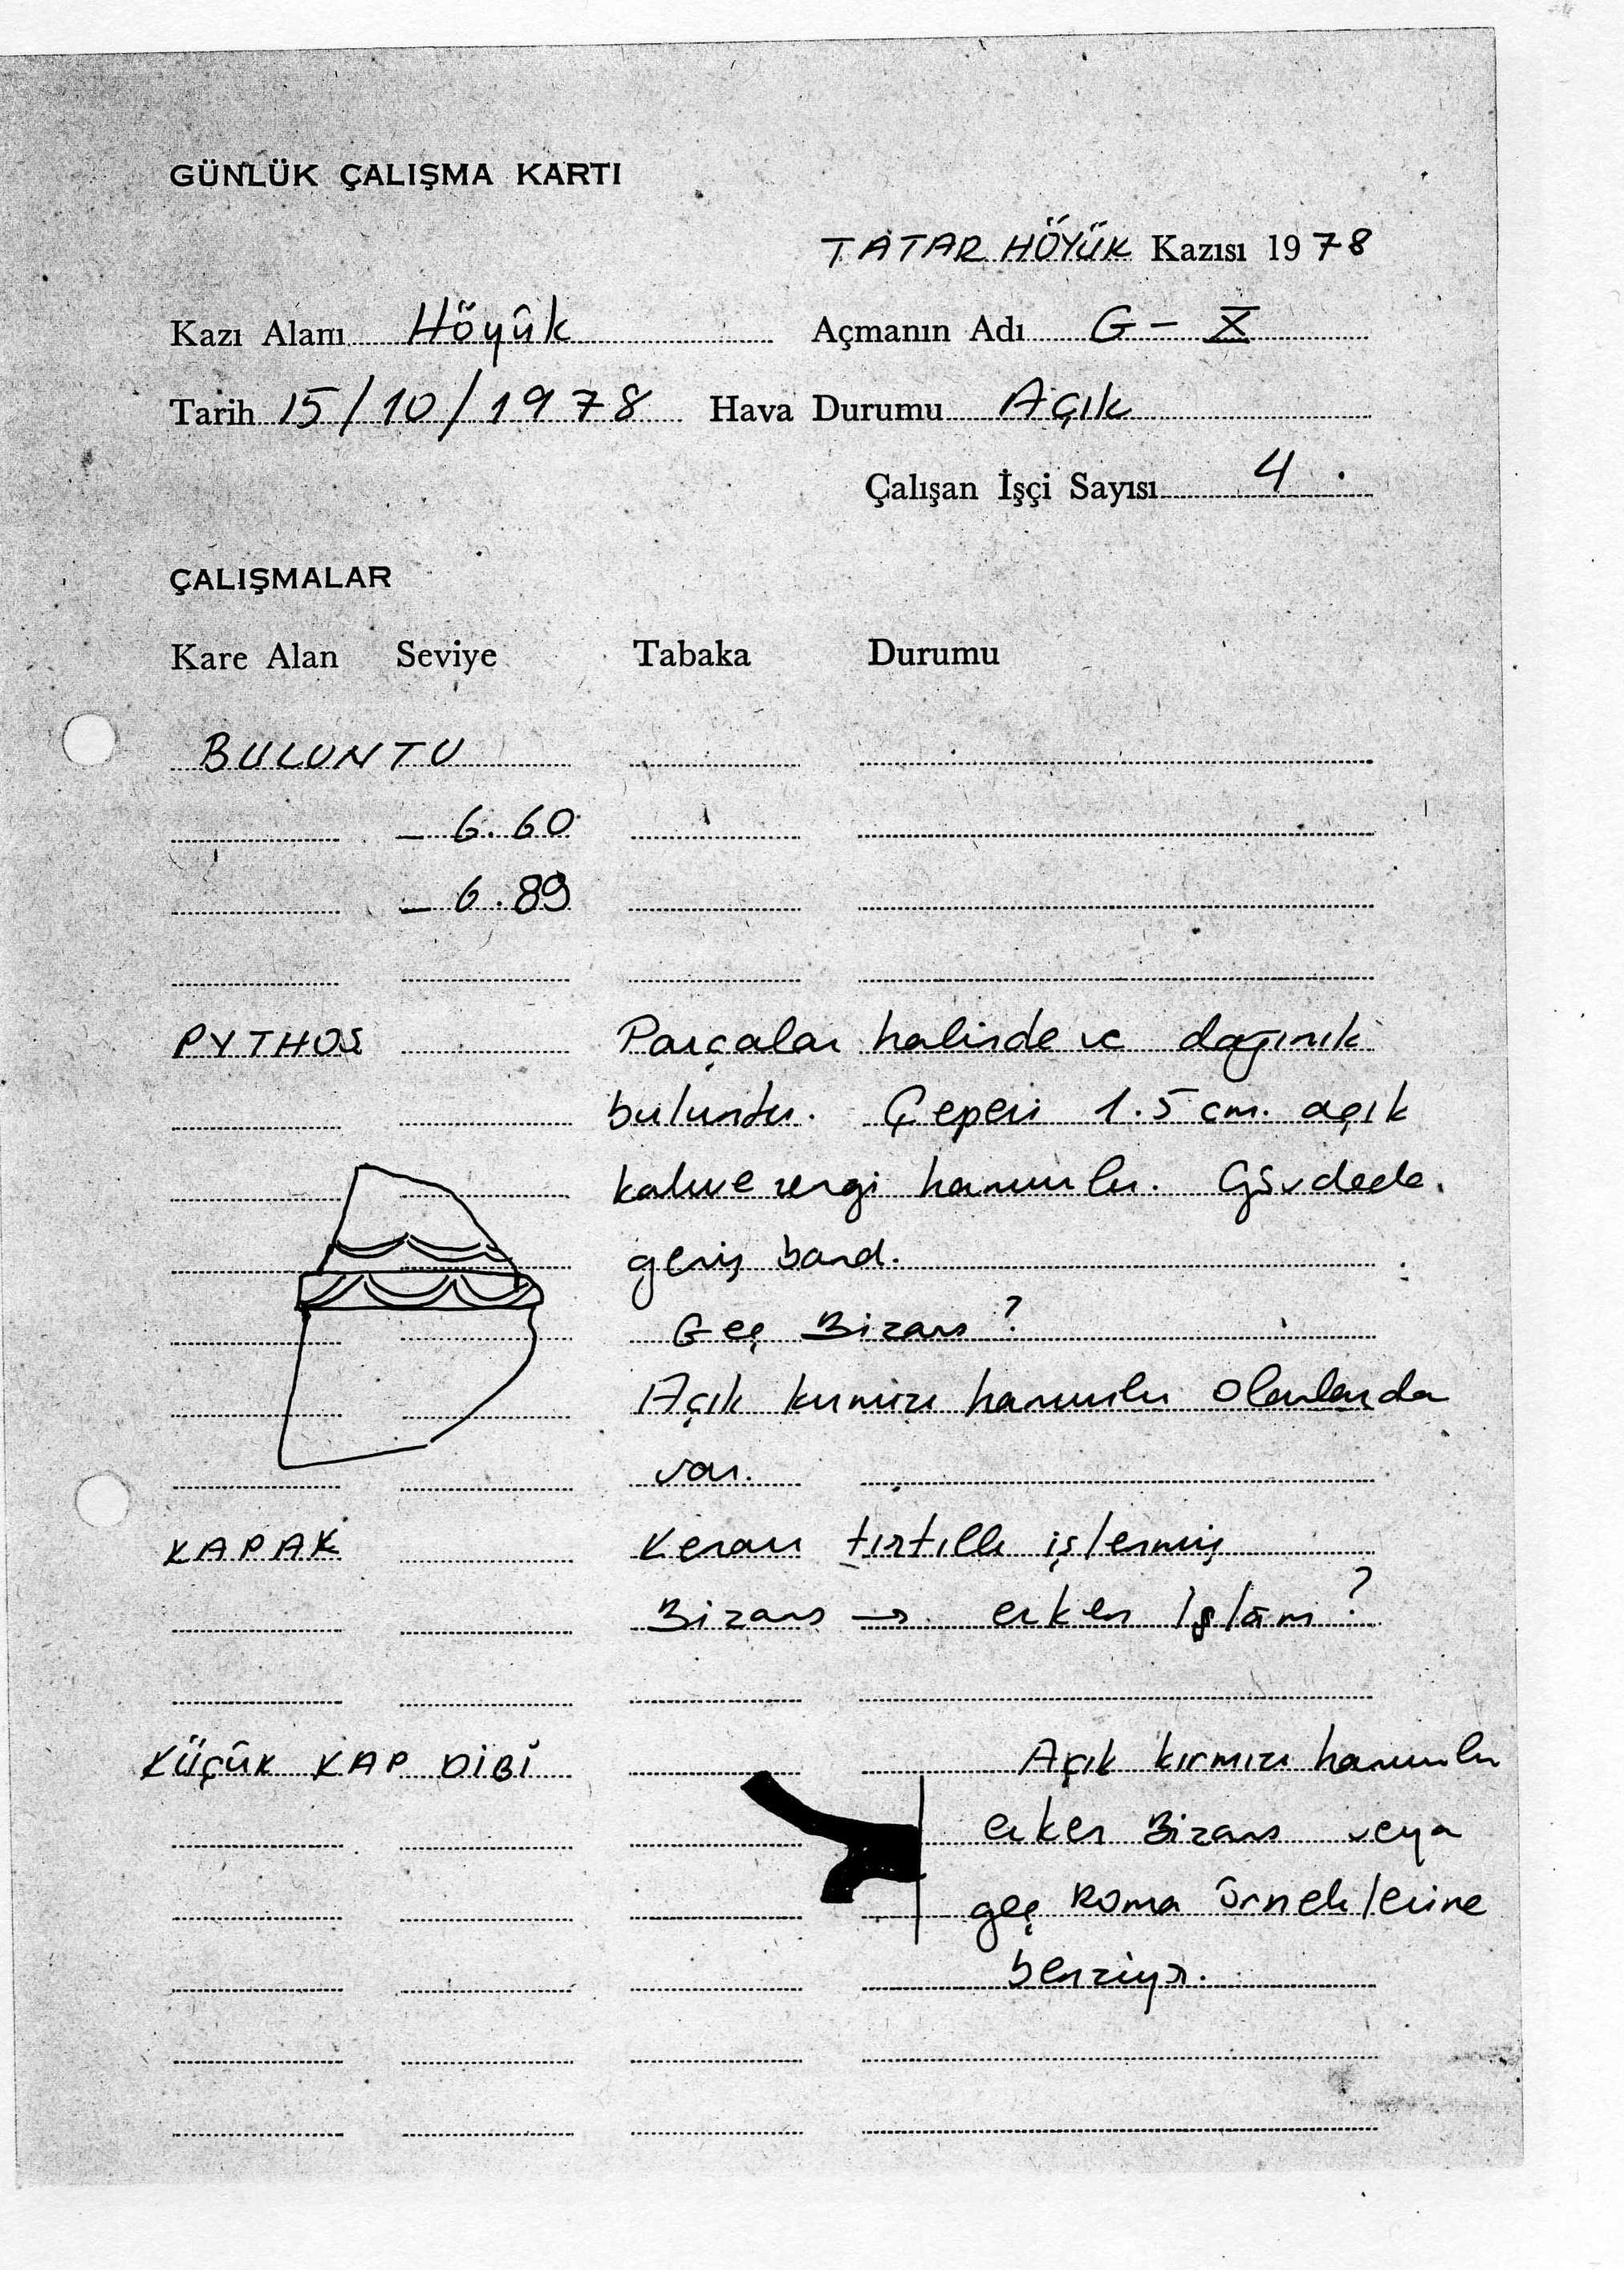 GÜNLÜK ÇALIŞMA KARTI
TATAR HÖYÜK Kazısı 1978
Kazı Alanı Höyük Açmanın Adı G - X
Tarih 15/10/1978 Hava Durumu Açık
Çalışan İşçi Sayısı 4
ÇALIŞMALAR
Kare Alan Seviye Tabaka Durumu
BULUNTU
- 6.60
- 6.89
PYTHOS Parçalar halinde ve dağınık
buluntu. Çeperi 1.5 cm. açık
kahve rengi hamurlu. Gövdede
geniş band.
Geç Bizans?
Açık kırmızı hamurlu olanlarda
var.
KAPAK Kenarı tırtıllı işlenmiş
Bizans → erken İslâm?
KÜÇÜK KAP DİBİ Açık kırmızı hamurlu
erken Bizans veya
geç Roma örneklerine
benziyor.